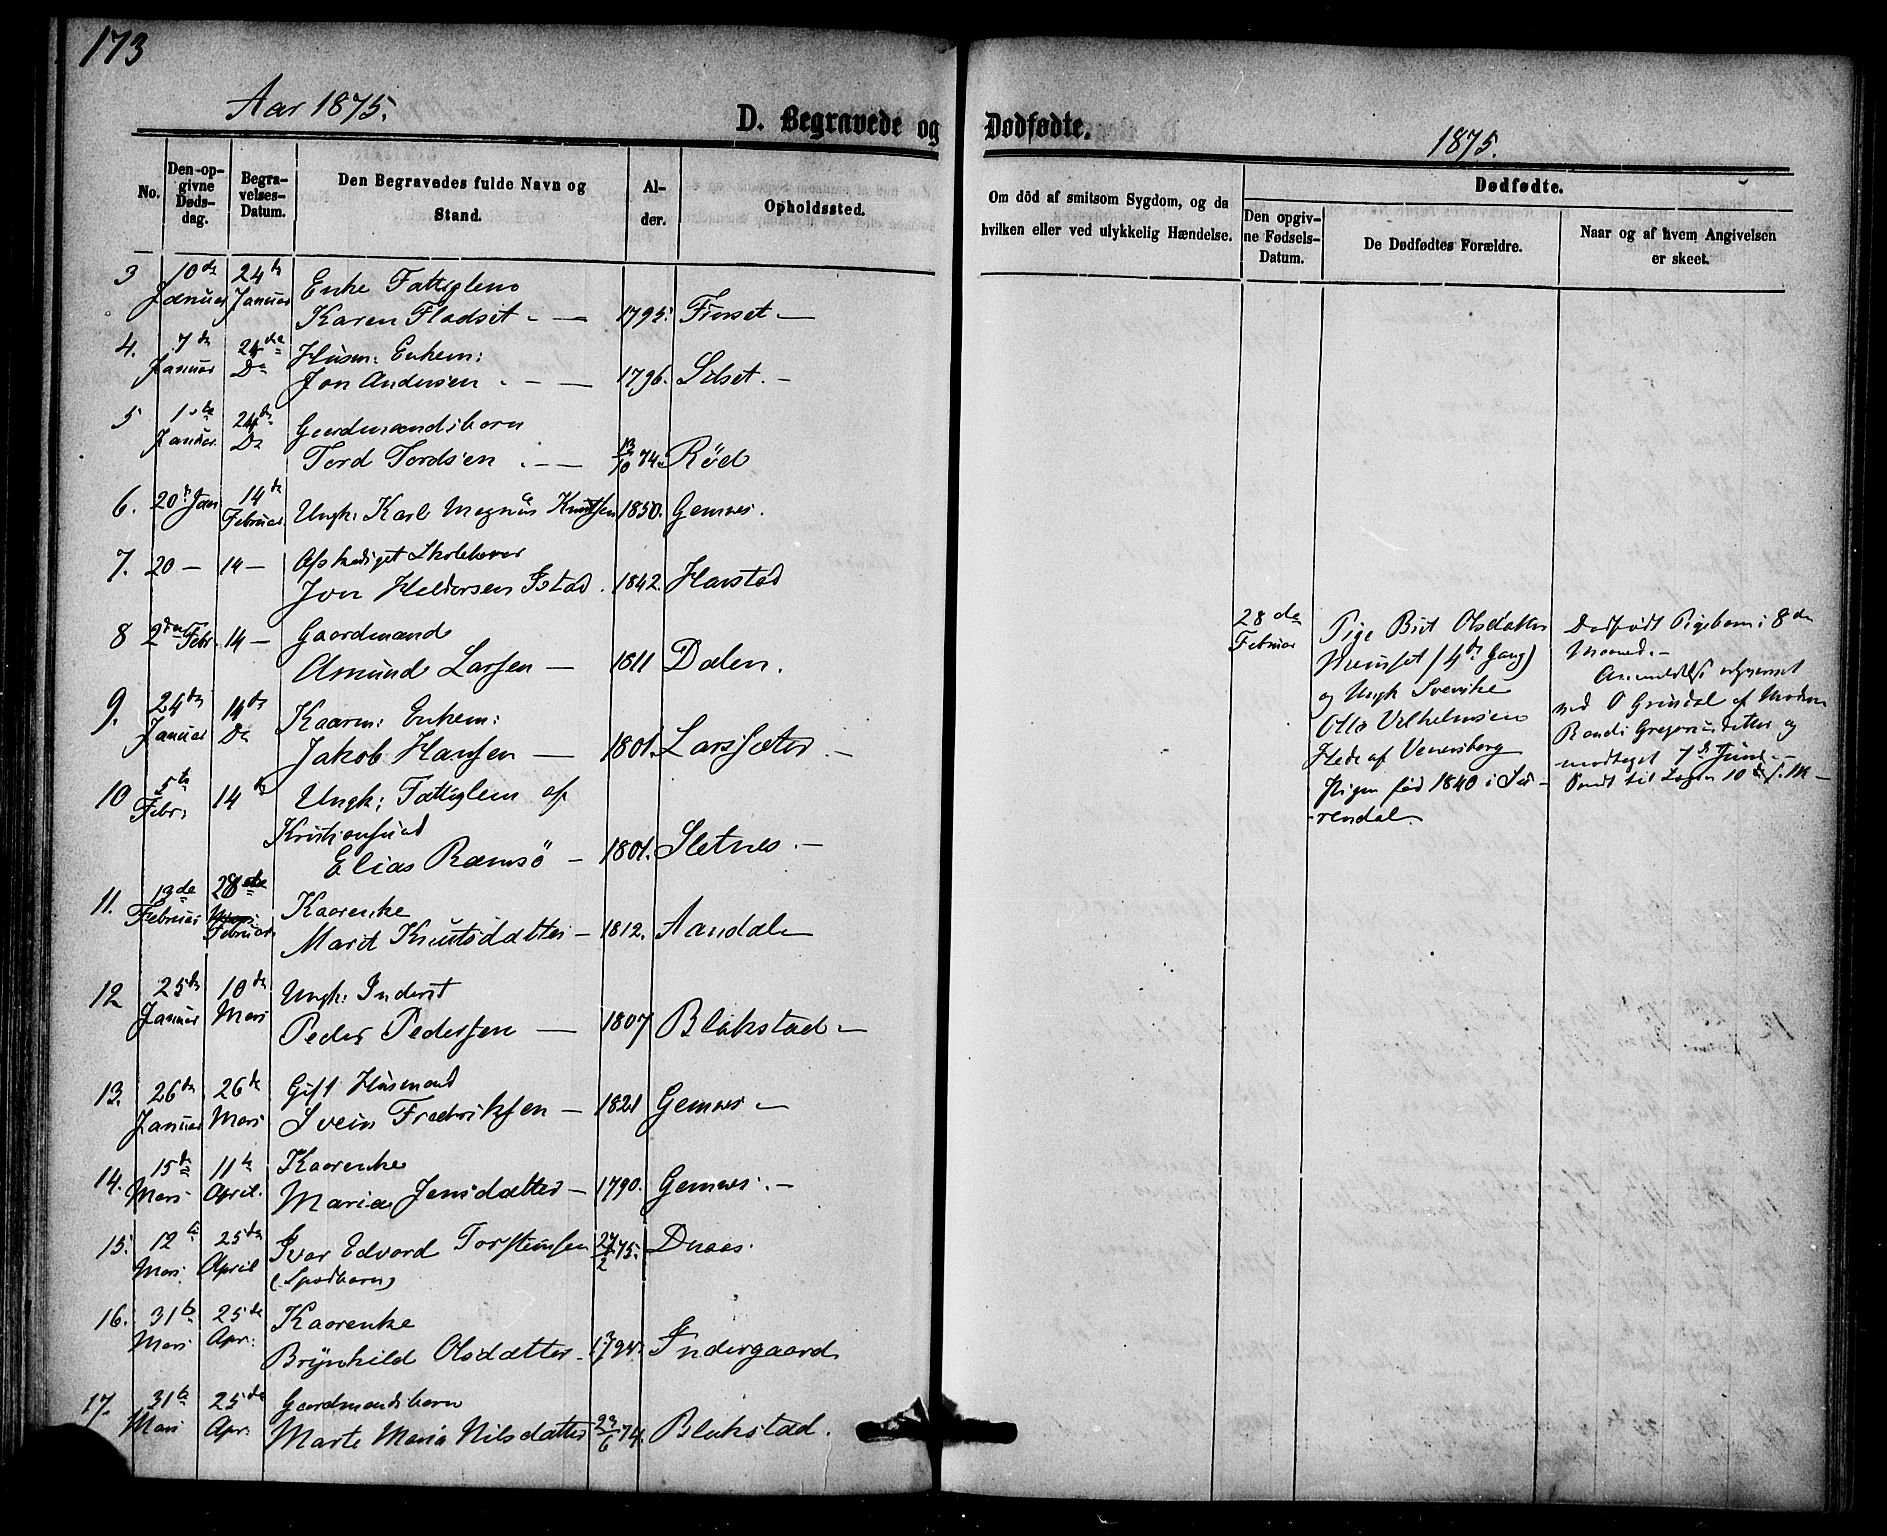 173
Aar 1875.
D. Begravede og Dødfødte.
1875.
No.
Den op-
givne
Døds-
dag.
Begra-
velses-
Datum.
Den Begravedes fulde Navn og
Stand.
Al-
der.
Opholdssted.
Om död af smitsom Sygdom, og da
hvilken eller ved ulykkelig Hændelse.
Dødfødte.
Den opgiv-
ne Fødsels-
Datum.
De Dødfødtes Forældre.
Naar og af hvem Angivelsen
er skeet.
3 10de Januar 24de Januar Enke Fattiglem
Karen Fladset - — 1795. Finset —
4. 7de Januar 24de Do Husm: Enkem:
Jon Andersen . - — 1796. Silset. -
5 Januar 24de Do Gaardmandsbarn
Tord Tordsen . - — 13/10 74. Rød
6. 20de Jan 14de Februar Ungk: Karl Magnus Knutsen 1850. Gemnes.
7. 20 — 14 — Afskediget Skolelærer
Jon Haldorsen Istad. 1842. Harstad
8 2den Febr. 14 — Gaardmand
Amund Larsen — 1811 Dalen.
9. 24de Januar 14de Do Kaarm: Enkem:
Jakob Hansen — 1801. Larssæter —
10 5te Febr. 14de Ungk: Fattiglem af
Kristiansund
Elias Ramsö — 1801. Sletnes. —
11. 13de Februar 28de Februar Kaarenke
Marit Knutsdatter — 1812. Aandal
12 25de Januar 10de Mars Ungk: Inderst
Peder Pedersen — 1807 Blakstad —
13. 26de Januar 26de Mars Gift Husmand
Svein Fredriksen — 1821 Gemnes —
14. 15de Mars 11te April. Kaarenke
Maria Jensdatter — 1790. Gemnes. —
15. 12te Mars 25de April Ivar Edvard Torsteinsen 24/2 75.
(Spædbarn)
16. 31te Mars 25de Apr: Kaarenke
Brynhild Olsdatter - Indergaard
17. 31te Mars 25de Apr: Gaardmandsbarn
Marte Maria Nilsdatter 23/6 74. Blakstad.
28de
Februar
Pige Brit Olsdatter
(4de Gang)
og Ungk Svenske
Otto Vilhelmsen
Hede af Venersborg
Pigen fød 1840 i Su-
rendal.
Dødfødt Pigebarn i 8de
Maaned. -
Anmeldelse
ved O Grindal af Moderen
Randi Gregoriusdatter og
modtaget 7de Juni. —
Sendt til Lagen 10de s. M —